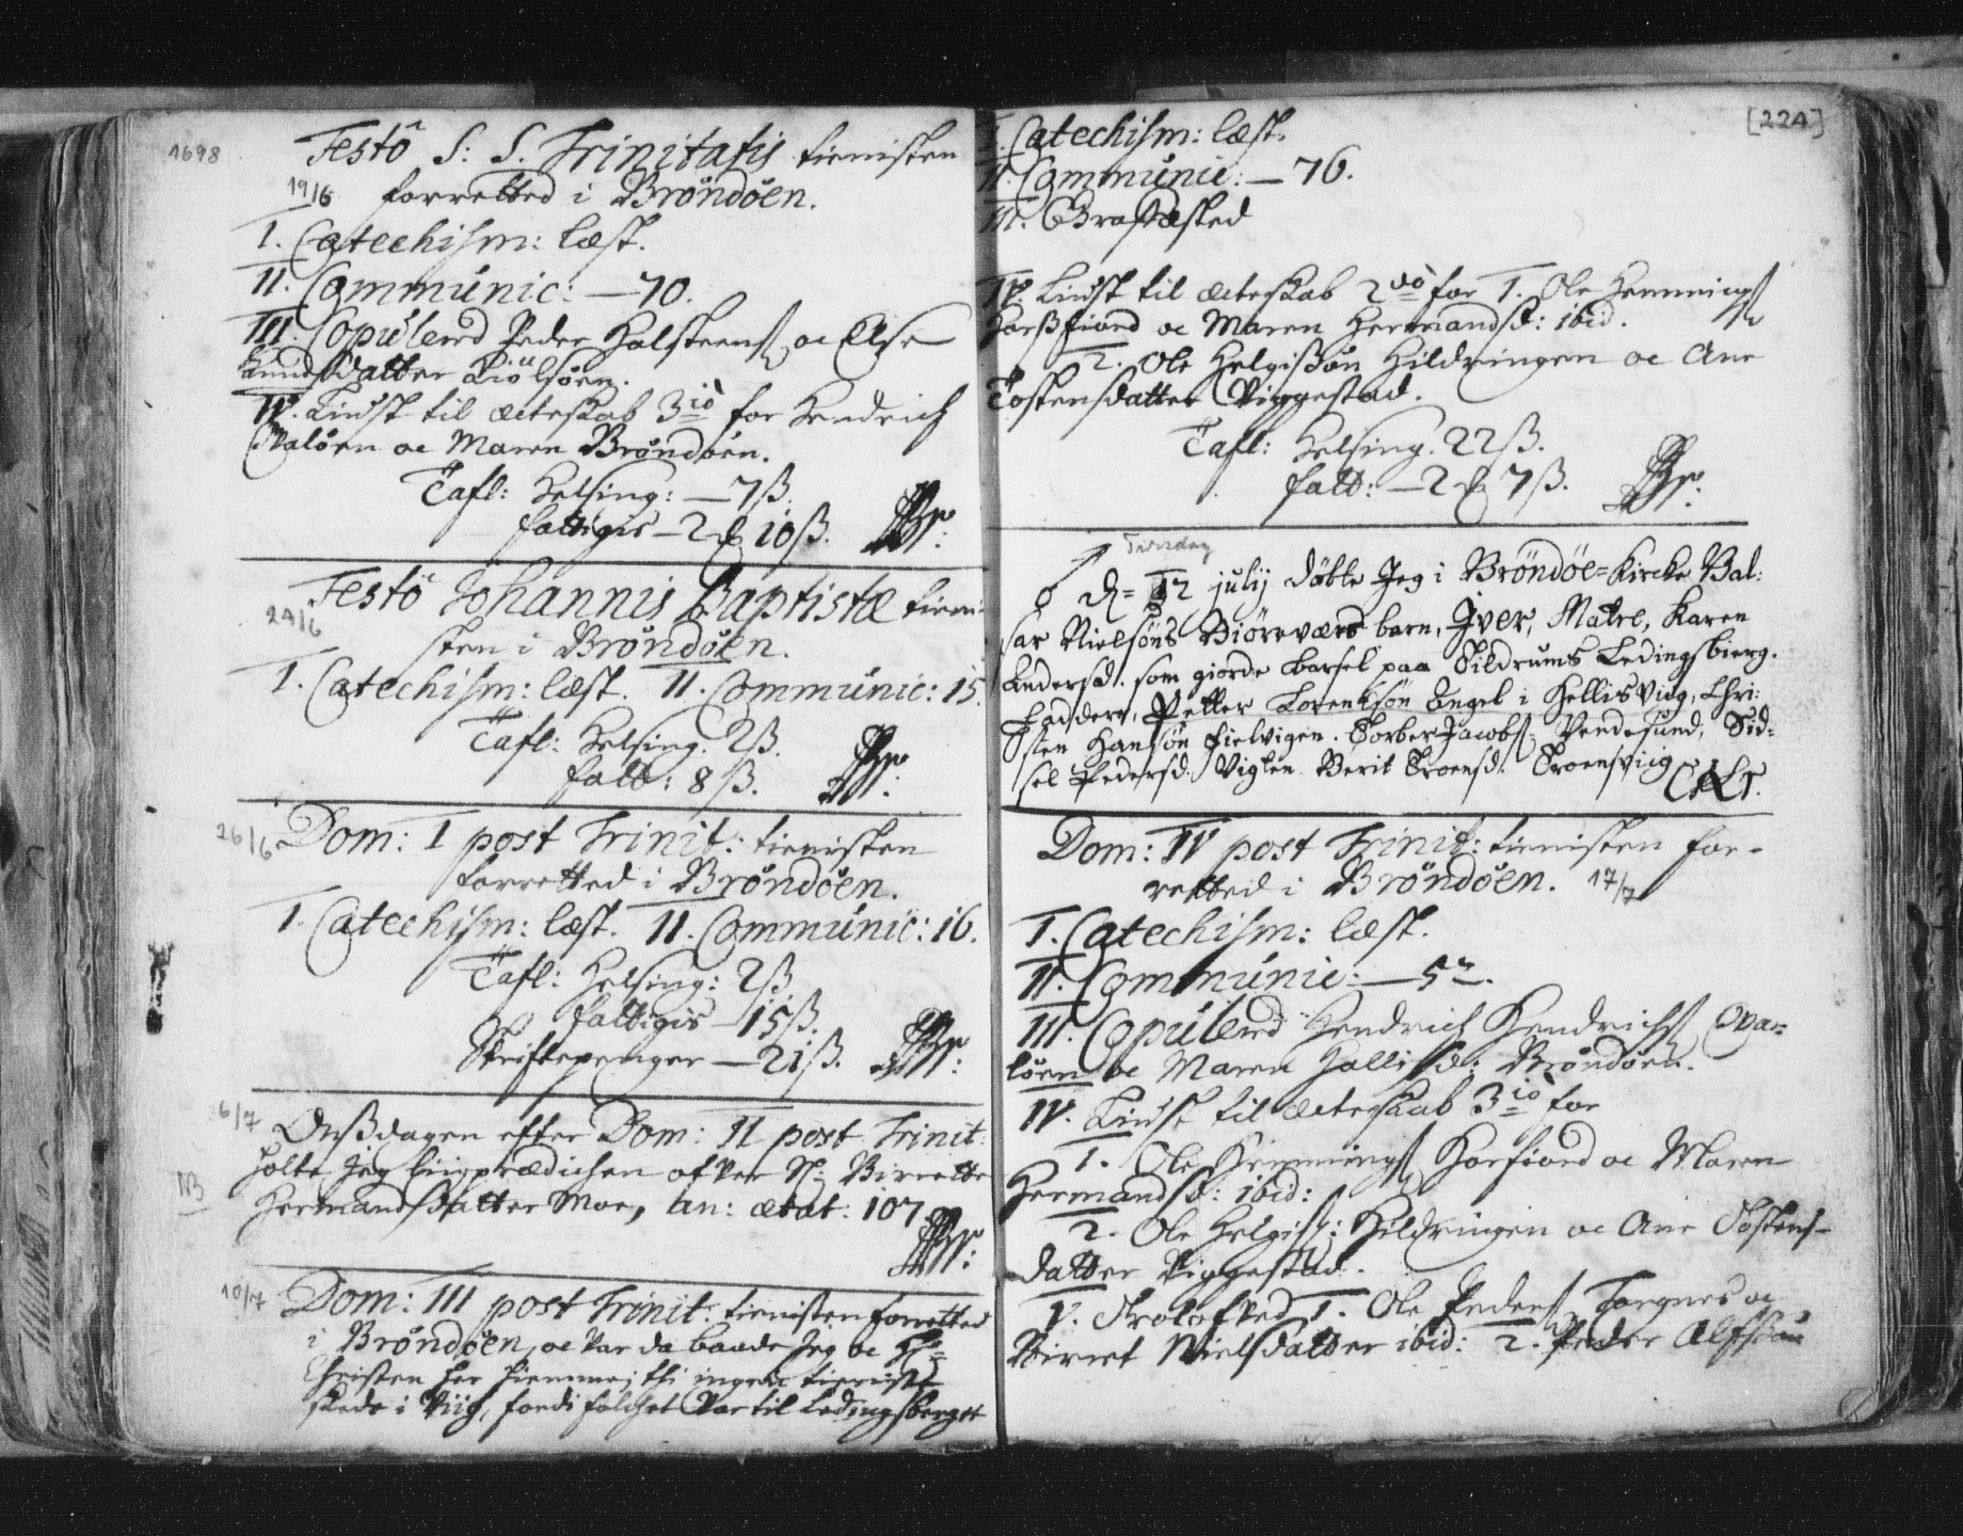 1698
Festo S: S. Trinitatis tienisten
19/6 forretted i Brøndøen.
I. Catechism: læst.
II. Communic: — 70.
III. Copulered Peder Halsteens. oc Else
Knudsdatter Tiølsøen.
IV. Liust til ecteskab 3io for Hendrich
Qvaløen oc Maren Brøndøen.
Tafl: Helsing: — 7ß.
fattigis — 2 10ß.
Festo Johannis Baptistæ tieni-
24/6
sten i Brøndøen.
I. Catechism: læst. II. Communic: 15.
Tafl: Helsing. 2ß.
fatt: 8ß.
26/6 Dom: I post Trinit: tienisten
forretted i Brøndøen.
I. Catechism: læst. II. Communic: 16.
Tafl: Helsing: 2ß
fattigis — 15ß.
Skriftepenger — 21ß.
6/7 Onßdagen efter Dom: II post Trinit:
holte Jeg liigprædichen ofver Sl: Birrette
NB Hermandsdatter Moe, an: ætat: 107
10/7 Dom: III post Trinit: tienisten forretted
i Brøndøen, oc var da baade Jeg oc Hr
Christen her hiemme, thi ingen tieniste
skede i Viig, fordi folchet var til Ledingsberget
[224]
I. Catechism: læst.
II. Communic: — 76.
III. Græsfæsted
IV. Liust til ecteskab 2do for 1. Ole Hemmings
Horßfiord oc Maren Hermandsd: ibid.
2. Ole Helgißøn Hildringen oc Ane
Tostensdatter Viggestad.
Tafl: Helsing. 22ß.
fatt: — 2 7ß.
Tirsdag
D= 12 julij døbte Jeg i Brøndøe-Kircke Bal:
sar Nielsøns Biørnværs barn, Iver, Matre, Karen
Andersd. som giorde barsel paa Sildrums Ledingsbierg.
Faddere, Petter Lorentsøn Angel i Hellisviig, Chri:
sten Hansøn Fielvigen. Torber Jacobs: Vendesund, Sid-
sel Pedersd. Viglen. Berit Troensd. Troensviig
Dom: IV post Trinit: tienisten for-
retted i Brøndøen. 17/7
I. Catechism: læst.
II. Communic: — 52.
III. Copulered Hendrich Hendrichs. Qva-
løen oc Maren Hallisd: Brøndøen.
IV. Liust til ecteskab 3io for
1. Ole Hemmings. Horfiord oc Maren
Hermandsd: ibid:
2. Ole Helgiss: Hildringen oc Ane Tostens-
datter Viggestad.
V. Trolofved 1. Ole Peders. Torgnes oc
Birret Nielsdatter ibid: 2. Peder Alfsøn